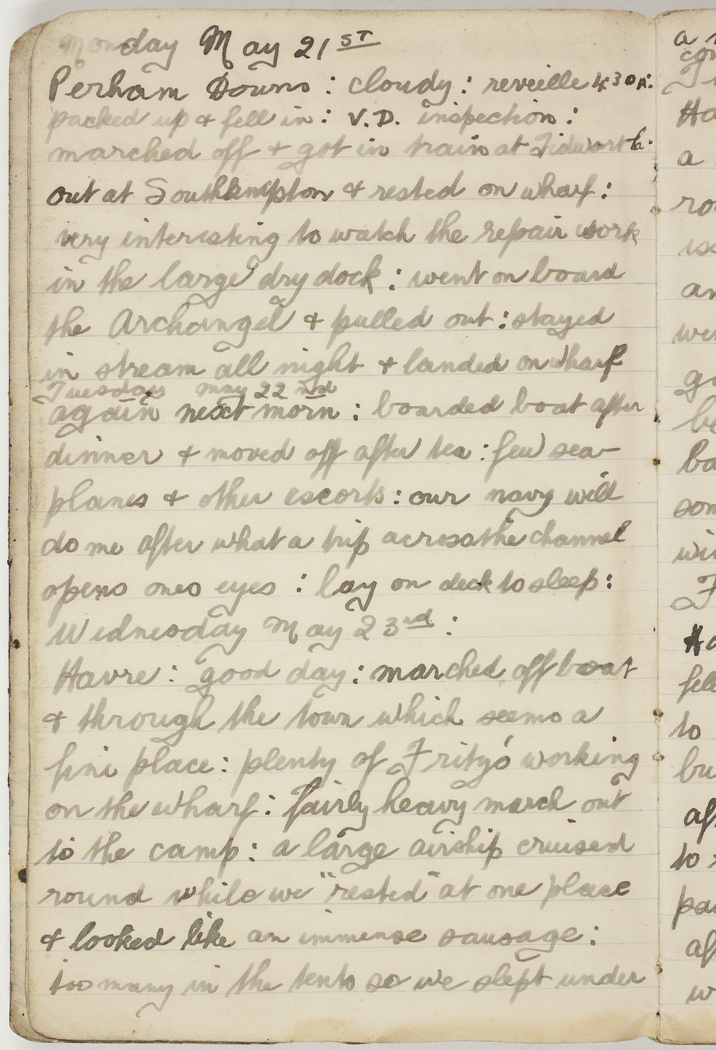 Monday May 21ST
Perham Downs: cloudy: reveille 430A:
packed up & fell in: V.D. inspection:
marched off & got in train at Tidworth:
out at Southhampton & rested on wharf:
very interesting to watch the repair work
in the large dry dock: went on board
the Archangel & pulled out: stayed
in stream all night & landed on wharf
Tuesday May 22nd
again next morn: boarded boat after
dinner & moved off after tea: few sea-
planes & other escorts: our navy will
do me after what a trip across the channel
opens ones eyes: lay on deck to sleep:
Wednesday May 23rd:
Havre: good day: marched off boat
& through the town which seems a
fine place: plenty of Fritys working
on the wharf: fairly heavy march out
to the camp: a large airship cruised
round while we "rested" at one place
& looked like an immense sausage:
too many in the tents so we slept under
a
Ha
a
to
bu
af
to
af
w